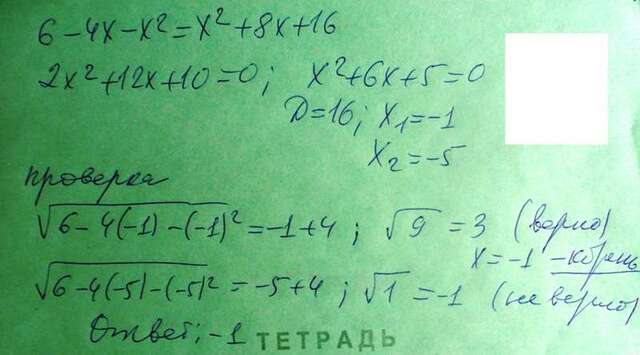 6-4x-x²=x²+8x+16
2x²+12x+10=0; x²+6x+5=0
D=16; x₁=-1
x₂=-5
проверка
√6-4(-1)-(-1)² =-1+4; √9 =3 (верно)
x=-1 -корень
√6-4(-5)-(-5)² =-5+4; √1 =-1 (не верно)
Ответ: -1
ТЕТРАДЬ